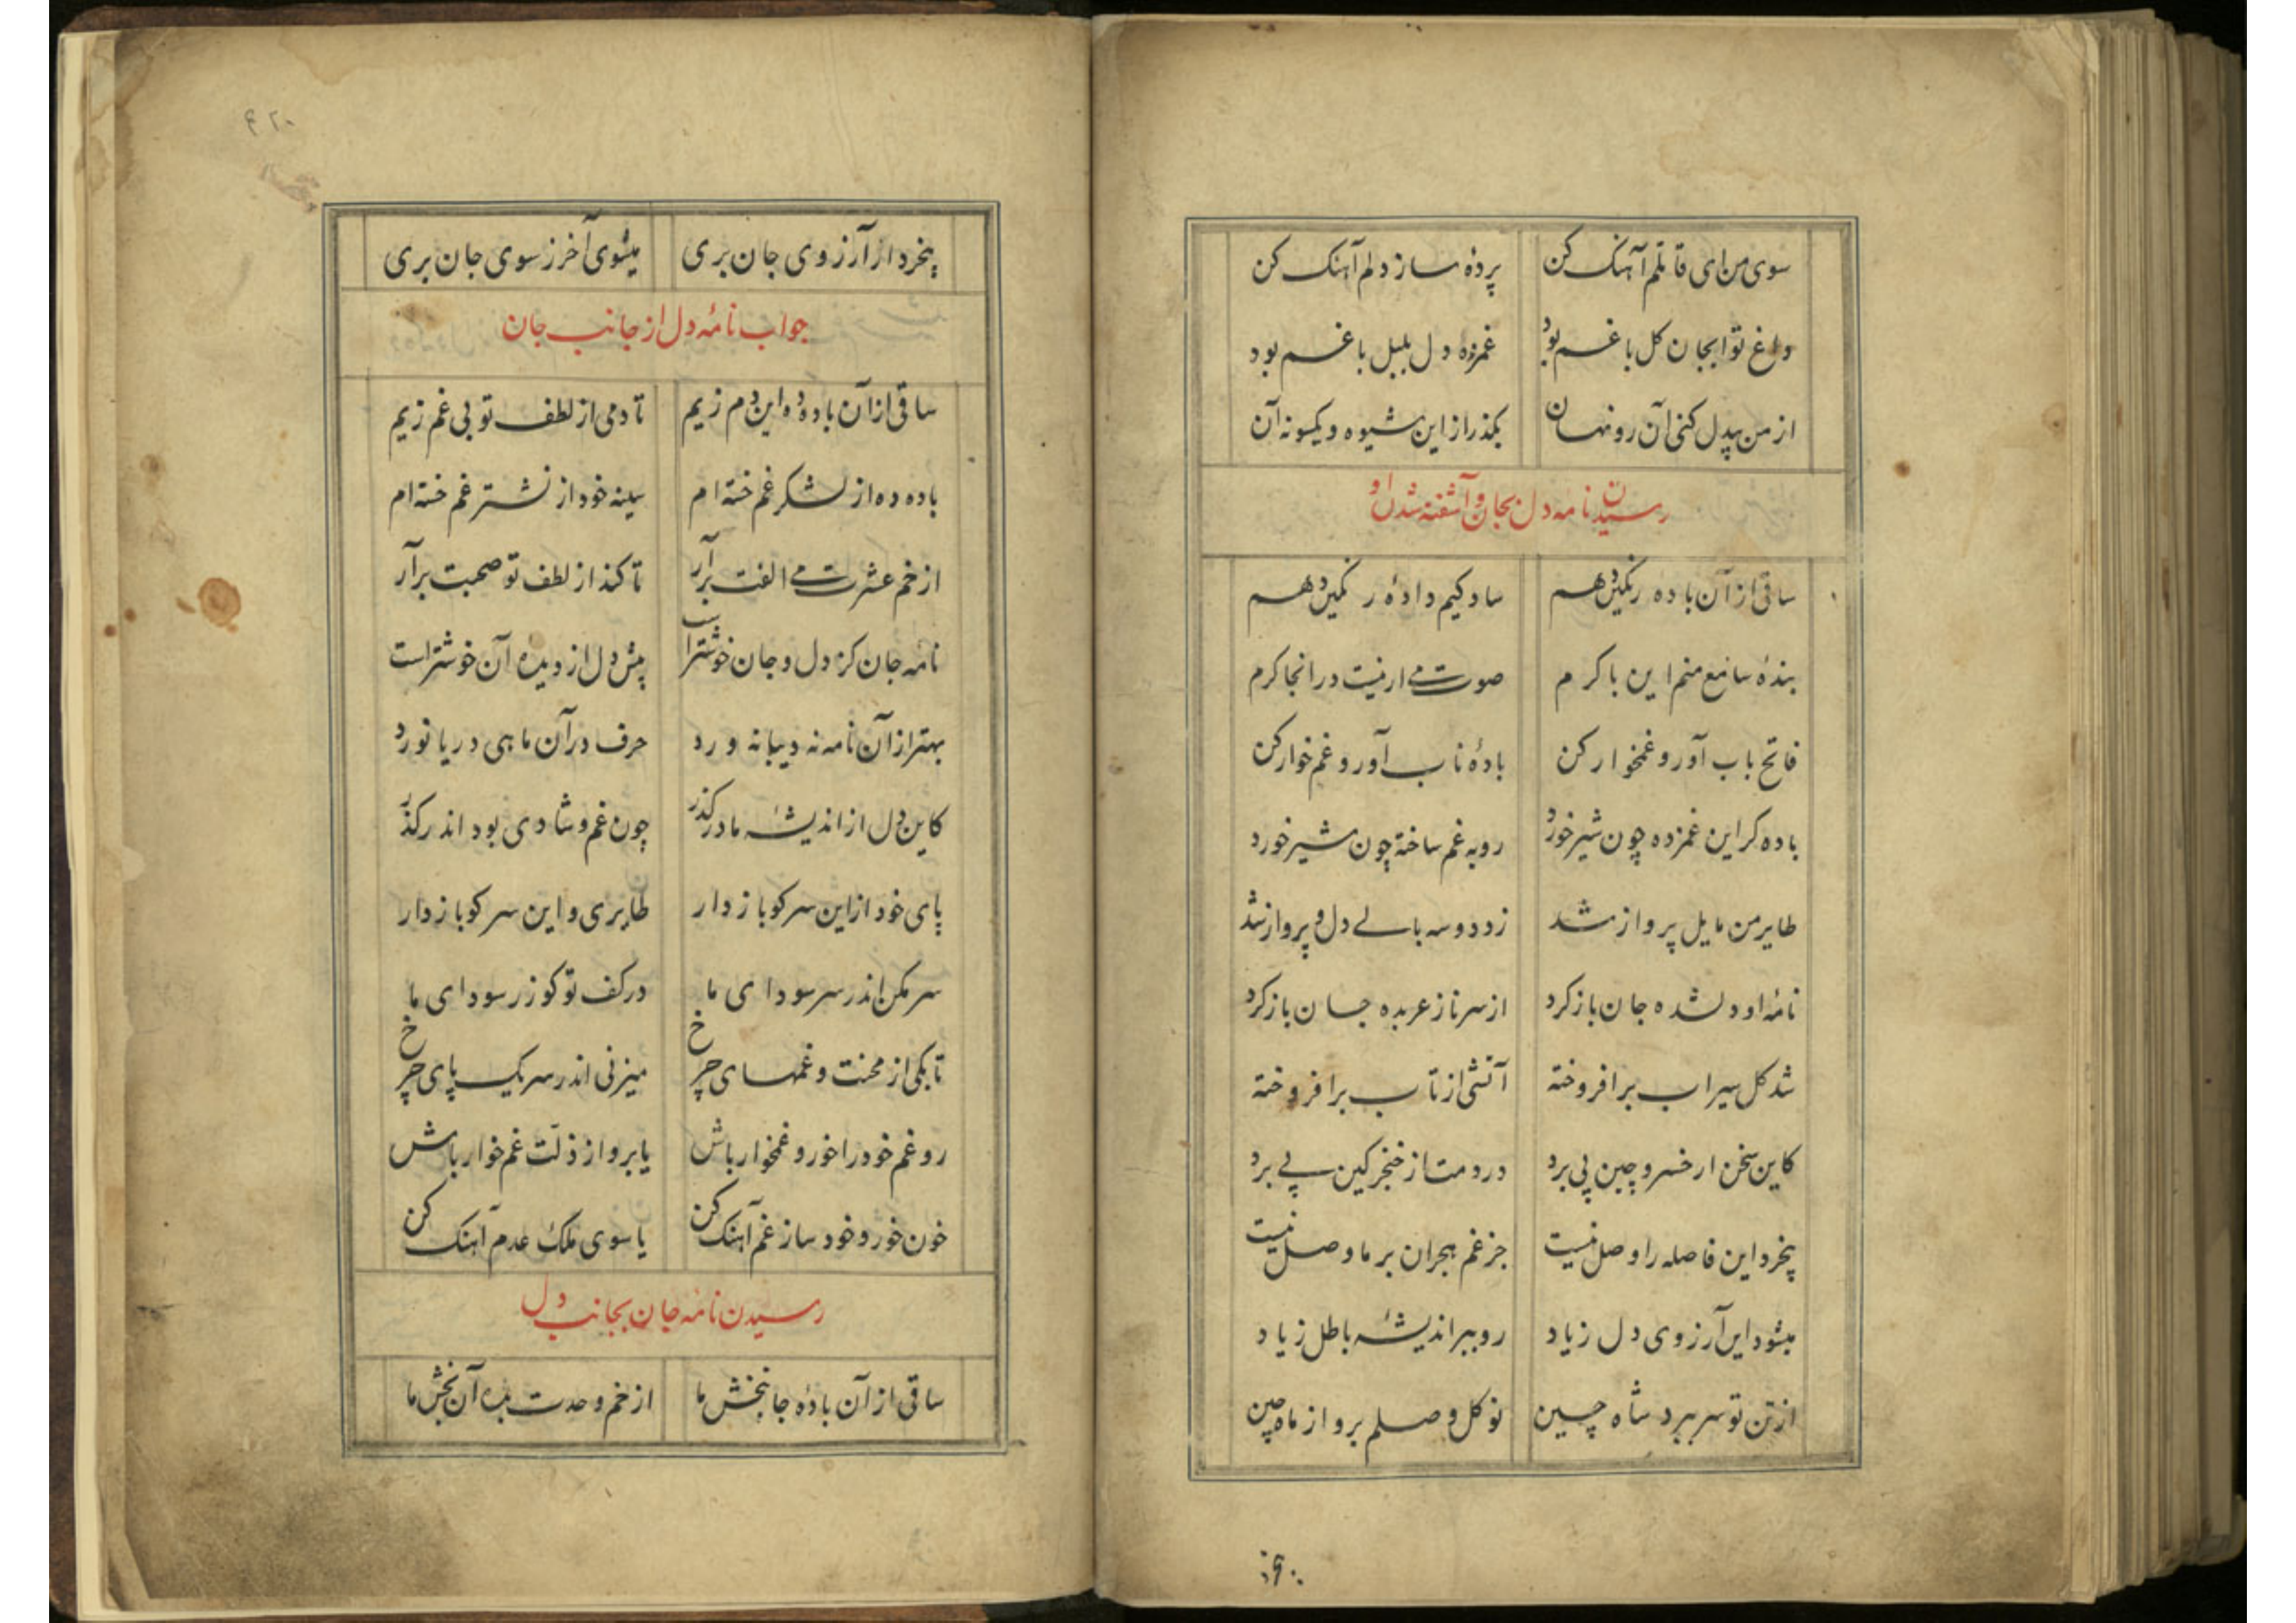 سوی من ای قاتلم آهنک کن پرده ساز دلم آهنک کن
داغ تو ایجان کل باغم بود غمزده دل بلبل باغم بود
از من بیدل کنی آن رو نهان بکذر از این شیوه و یکسو نه آن
رسیدن نامه دل بجان و آشفته شدن او
ساقی از آن باده رنکین دهم ساد کیم داده رنکین دهم
بنده سامع منم این با کرم صوت می ار نیست در انجا کرم
فاتح باب آور و غمخوار کن باده ناب آور و غم خوار کن
باده کر این غمزده چون شیر خورد روبه غم ساخته چون شیر خورد
طایر من مایل پرواز شد زد دو سه بالی دل و پرواز شد
نامه او دلشده جان باز کرد از سر ناز عربده جان باز کرد
شد کل سیراب برافروخته آتشی از تاب برافروخته
کاین سخن ار خسرو چین پی برد درد مت از خنجر کین پی برد
پخرد این فاصله را وصل نیست جز غم هجران بر ما وصل نیست
میشود این آرزوی دل زیاد رو ببر اندیشه باطل ز یاد
از تن تو سر ببرد شاه چین تو کل وصلم برو از ماه چین
پخرد از آرزوی جان بری میشوی آخر ز سوی جان بری
جواب نامه دل از جانب جان
ساقی از آن باده ده این دم زیم تا دمی از لطف تو بی غم زیم
باده ده از لشکر غم خسته ام سینه خود از نشتر غم خسته ام
از خم عشرت می الفت برآر تا کند از لطف تو صحبت برآر
نامه جان کز دل و جان خوشتر است پیش دل از دیده آن خوشتر است
بهتر از آن نامه نه دیبا نه ورد حرف در آن ماهی دریا نورد
کاین دل از اندیشه ما درکذر چون غم و شادی بود اندر کذر
پای خود از این سر کو باز دار طایری و این سر کو باز دار
سر مکن اندر سر سودای ما در کف تو کو زر سودای ما
تا بکی از محنت و غمهای چرخ میزنی اندر سر یک پای چرخ
رو غم خود را خور و غمخوار باش یا برو از ذلت غم خوار باش
خون خور و خود ساز غم آهنک کن یا سوی ملک عدم آهنک کن
رسیدن نامه جان بجانب دل
ساقی از آن باده جانبخش ما از خم وحدت بده آن بخش ما